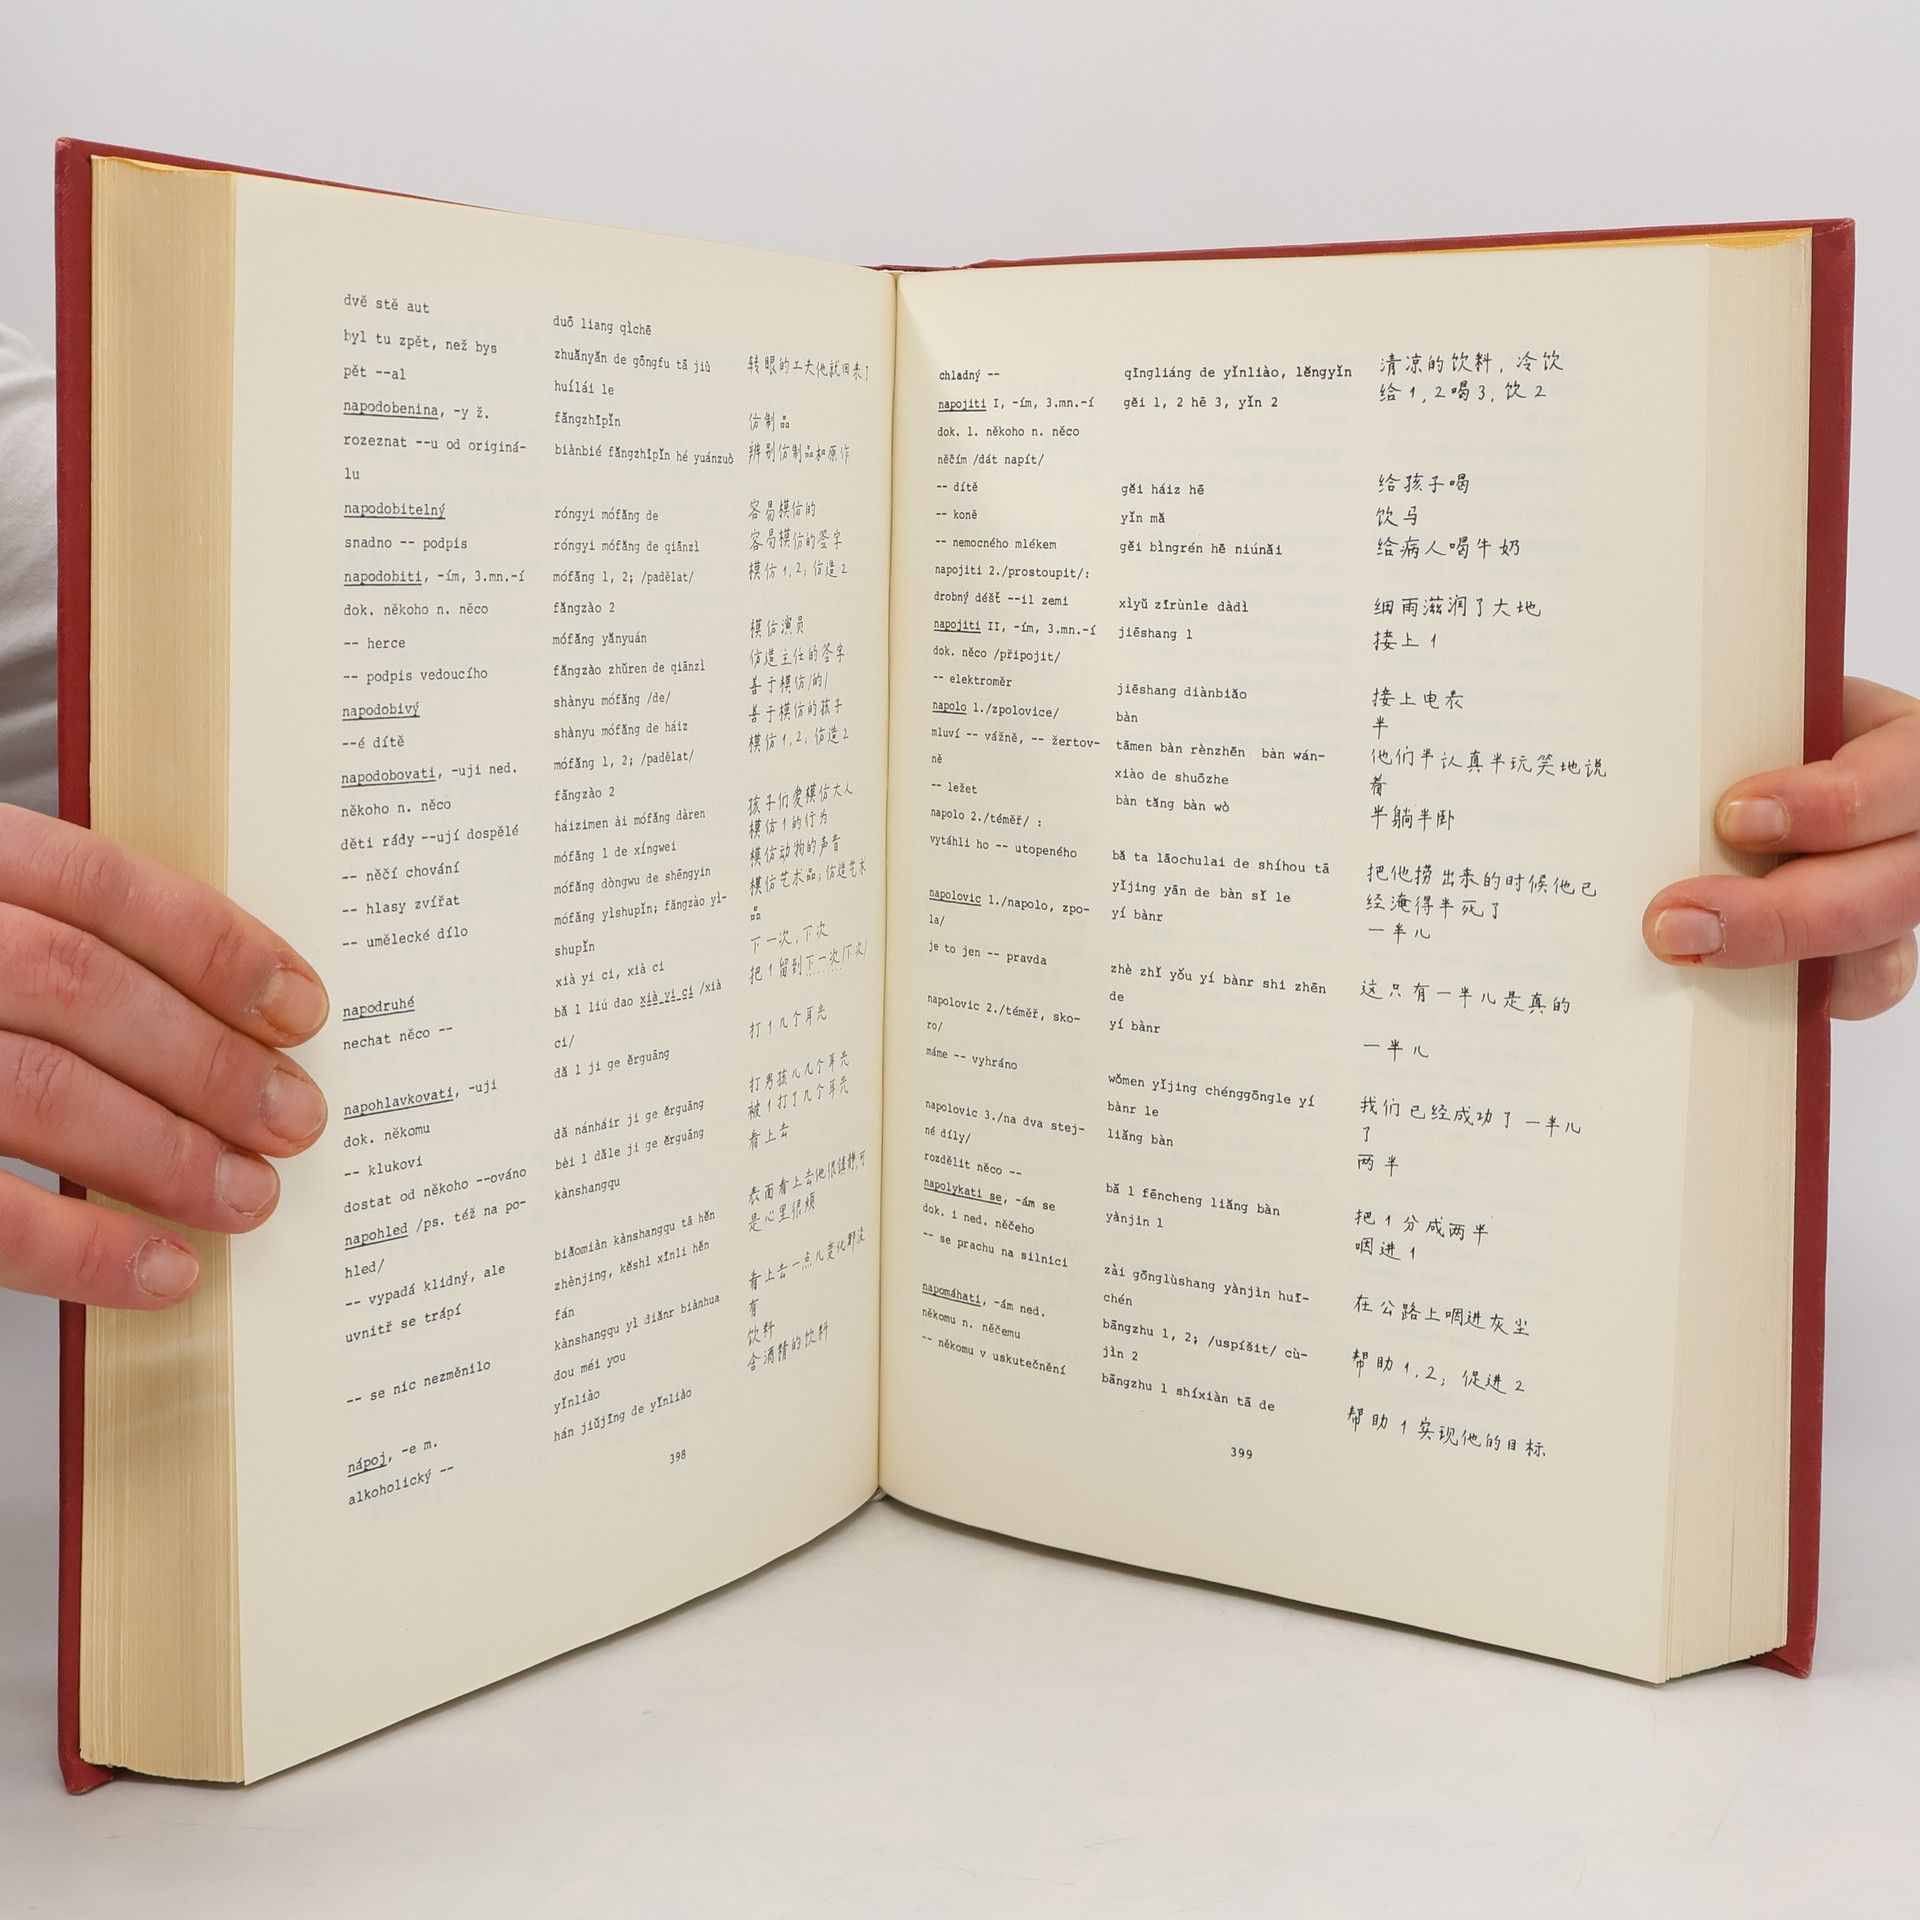 dvě stě aut
byl tu zpět, než bys
pět --al
napodobenina, -y ž.
rozeznat --u od originá-
lu
napodobitelný
snadno -- podpis
napodobiti, -ím, 3.mn.-í
dok. někoho n. něco
-- herce
-- podpis vedoucího
napodobivý
--é dítě
napodobovati, -uji ned.
někoho n. něco
děti rády --ují dospělé
-- něčí chování
-- hlasy zvířat
-- umělecké dílo
napodruhé
nechat něco --
napohlavkovati, -uji
dok. někomu
-- klukovi
dostat od někoho --ováno
napohled /ps. též na po-
hled/
-- vypadá klidný, ale
uvnitř se trápí
-- se nic nezměnilo
nápoj, -e m.
alkoholický --
duō liang qìchē
zhuǎnyǎn de gōngfu tā jiù
huílái le
fǎngzhìpǐn
biànbié fǎngzhìpǐn hé yuánzuò
róngyi mófǎng de
róngyi mófǎng de qiānzì
mófǎng 1, 2; /padělat/
fǎngzào 2
mófǎng yǎnyuán
fǎngzào zhǔren de qiānzì
shànyu mófǎng /de/
shànyu mófǎng de háiz
mófǎng 1, 2; /padělat/
fǎngzào 2
háizimen ài mófǎng dàren
mófǎng 1 de xíngwei
mófǎng dòngwu de shēngyin
mófǎng yìshupǐn; fǎngzào yì-
shupǐn
xià yi ci, xià ci
bǎ 1 liú dao xià yi ci /xià
ci/
dǎ 1 ji ge ěrguāng
dǎ nánháir ji ge ěrguāng
bèi 1 dǎle ji ge ěrguāng
kànshangqu
biǎomiàn kànshangqu tā hěn
zhènjing, kěshì xīnli hěn
fán
kànshangqu yì diǎnr biànhua
dou méi you
yǐnliào
hán jiǔjīng de yǐnliào
转眼的工夫他就回来了
仿制品
辨别仿制品和原作
容易模仿的
容易模仿的签字
模仿1,2;仿造2
模仿演员
仿造主任的签字
善于模仿/的/
善于模仿的孩子
模仿1,2;仿造2
孩子们爱模仿大人
模仿1的行为
模仿动物的声音
模仿艺术品;仿造艺术
品
下一次,下次
把1留到下一次/下次/
打1几个耳光
打男孩儿几个耳光
被1打了几个耳光
看上去
表面看上去他很镇静,可
是心里很烦
看上去一点儿变化都没
有
饮料
含酒精的饮料
398
chladný --
napojiti I, -ím, 3.mn.-í
dok. 1. někoho n. něco
něčím /dát napít/
-- dítě
-- koně
-- nemocného mlékem
napojiti 2./prostoupit/:
drobný déšť --il zemi
napojiti II, -ím, 3.mn.-í
dok. něco /připojit/
-- elektroměr
napolo 1./zpolovice/
mluví -- vážně, -- žertov-
ně
-- ležet
napolo 2./téměř/ :
vytáhli ho -- utopeného
napolovic 1./napolo, zpo-
la/
je to jen -- pravda
napolovic 2./téměř, sko-
ro/
máme -- vyhráno
napolovic 3./na dva stej-
né díly/
rozdělit něco --
napolykati se, -ám se
dok. i ned. něčeho
-- se prachu na silnici
napomáhati, -ám ned.
někomu n. něčemu
-- někomu v uskutečnění
qīngliáng de yǐnliào, lěngyǐn
gěi 1, 2 hē 3, yǐn 2
gěi háiz hē
yǐn mǎ
gěi bìngrén hē niúnǎi
xìyǔ zīrùnle dàdì
jiēshang 1
jiēshang diànbiǎo
bàn
tāmen bàn rènzhēn bàn wán-
xiào de shuōzhe
bàn tǎng bàn wò
bǎ ta lāochulai de shíhou tā
yǐjing yān de bàn sǐ le
yí bànr
zhè zhǐ yǒu yí bànr shi zhēn
de
yí bànr
wǒmen yǐjing chénggōngle yí
bànr le
liǎng bàn
bǎ 1 fēncheng liǎng bàn
yànjìn 1
zài gōnglùshang yànjìn huī-
chén
bāngzhu 1, 2; /uspíšit/ cù-
jìn 2
bāngzhu 1 shíxiàn tā de
清凉的饮料,冷饮
给1,2喝3,饮2
给孩子喝
饮马
给病人喝牛奶
细雨滋润了大地
接上1
接上电表
半
他们半认真半玩笑地说
着
半躺半卧
把他捞出来的时候他已
经淹得半死了
一半儿
这只有一半儿是真的
一半儿
我们已经成功了一半儿
了
两半
把1分成两半
咽进1
在公路上咽进灰尘
帮助1,2;促进2
帮助1实现他的目标
399